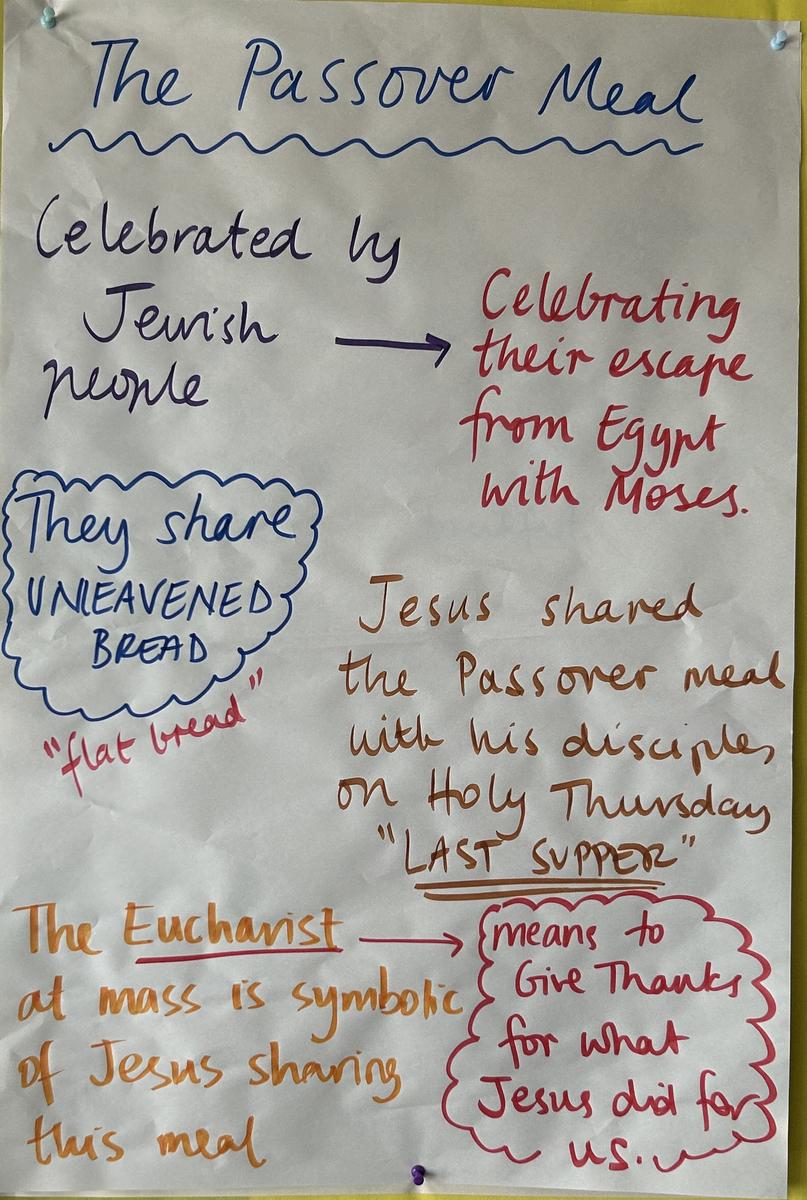 The Passover Meal
Celebrated by
Jewish
people
Celebrating
their escape
from Egypt
with Moses.
They share
UNLEAVENED
BREAD
"flat bread"
Jesus shared
the Passover meal
with his disciples
on Holy Thursday
"LAST SUPPER"
The Eucharist
at mass is symbolic
of Jesus sharing
this meal
means to
Give Thanks
for what
Jesus did for
us.